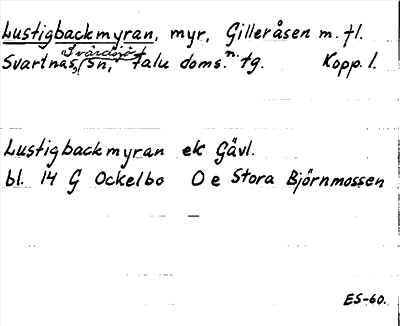 Lustigbackmyran, myr, Gilleråsen m. fl.
Svärdsjö
Svartnäs, sn, Falu doms. n. tg. Kopp. l.
Lustigbackmyran ek Gävl.
bl. 14 G Ockelbo O e Stora Björnmossen
ES-60.